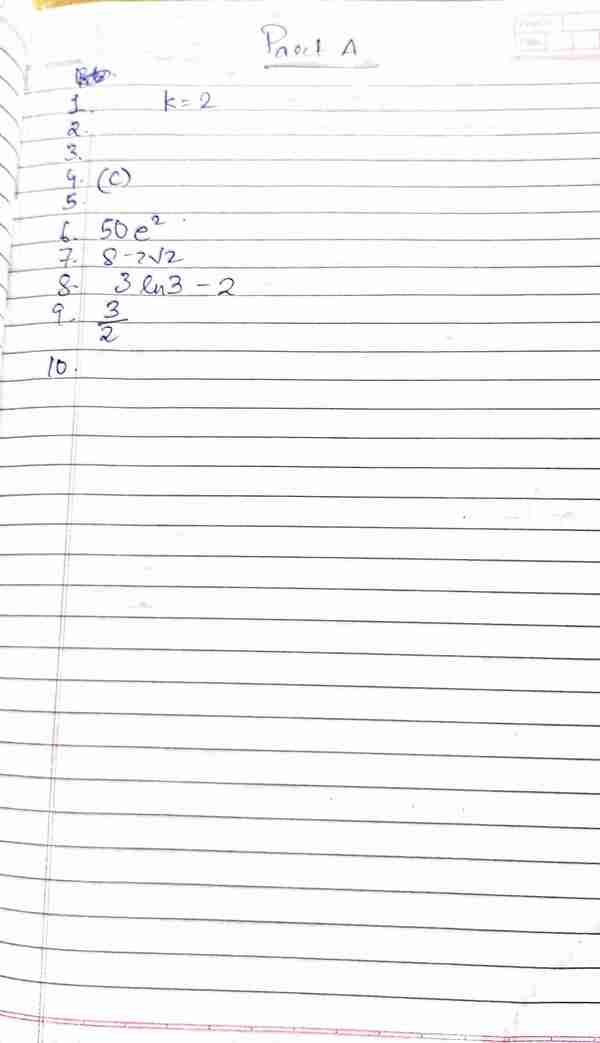 Part A
1. k = 2
2.
3.
4. (C)
5.
6. 50e²
7. 8 - 2√2
8. 3 ln3 - 2
9. 3/2
10.